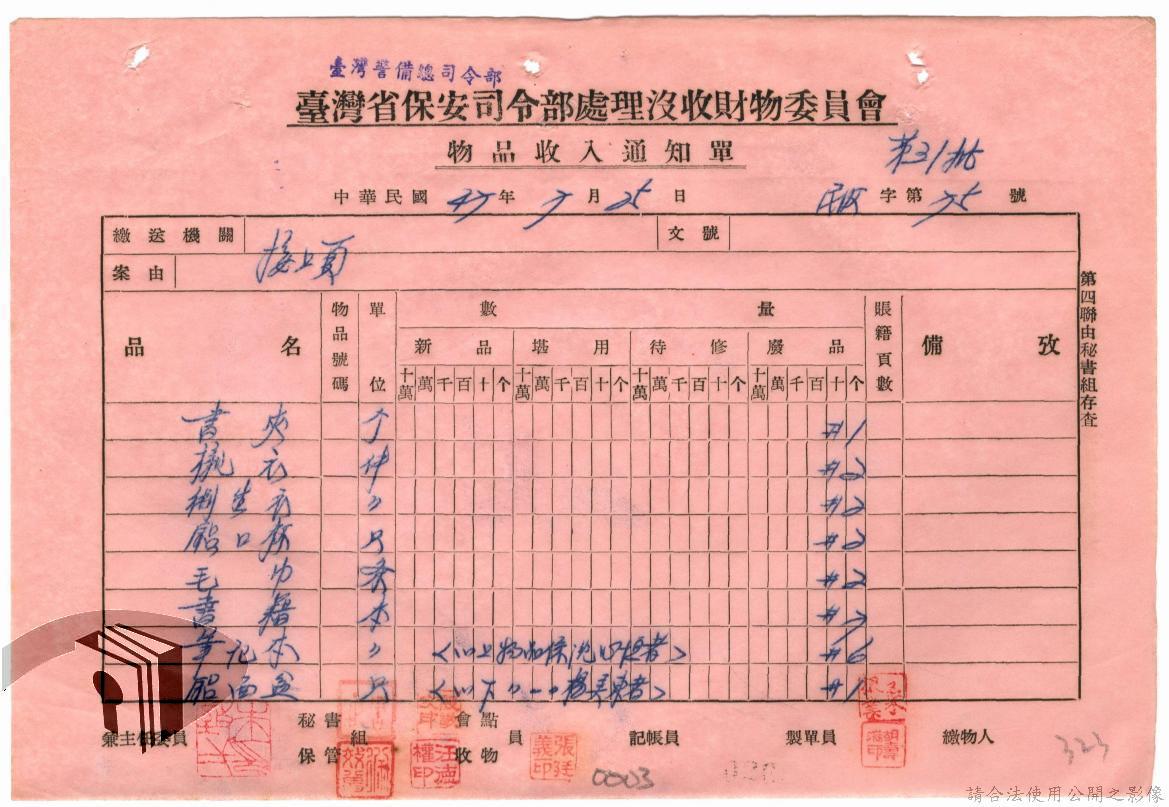 臺灣警備總司令部
臺灣省保安司令部處理沒收財物委員會
物品收入通知單
第31批
中華民國 47年 7月 25日 字第 75 號
繳送機關 文號
案由 接上頁
第四聯由秘書組存查
品名 物品號碼 單位 數量 賬籍頁數 備攷
新品 堪用 待修 廢品
十萬 萬 千 百 十 个 十萬 萬 千 百 十 个 十萬 萬 千 百 十 个 十萬 萬 千 百 十 个
書夾 个 #1
衣 件 #2
衛生衣 〃 #2
鋁口杯 只 #2
毛巾 条 #2
書籍 本 #7
筆記本 〃 <以上物品係 者> #6
鋁面盆 只 <以下 者> #1
兼主任委員 秘書組 會點 員 記帳員 製單員 繳物人
保管 收物
汪德權印
張廷義印
0003
323
請合法使用公開之影像